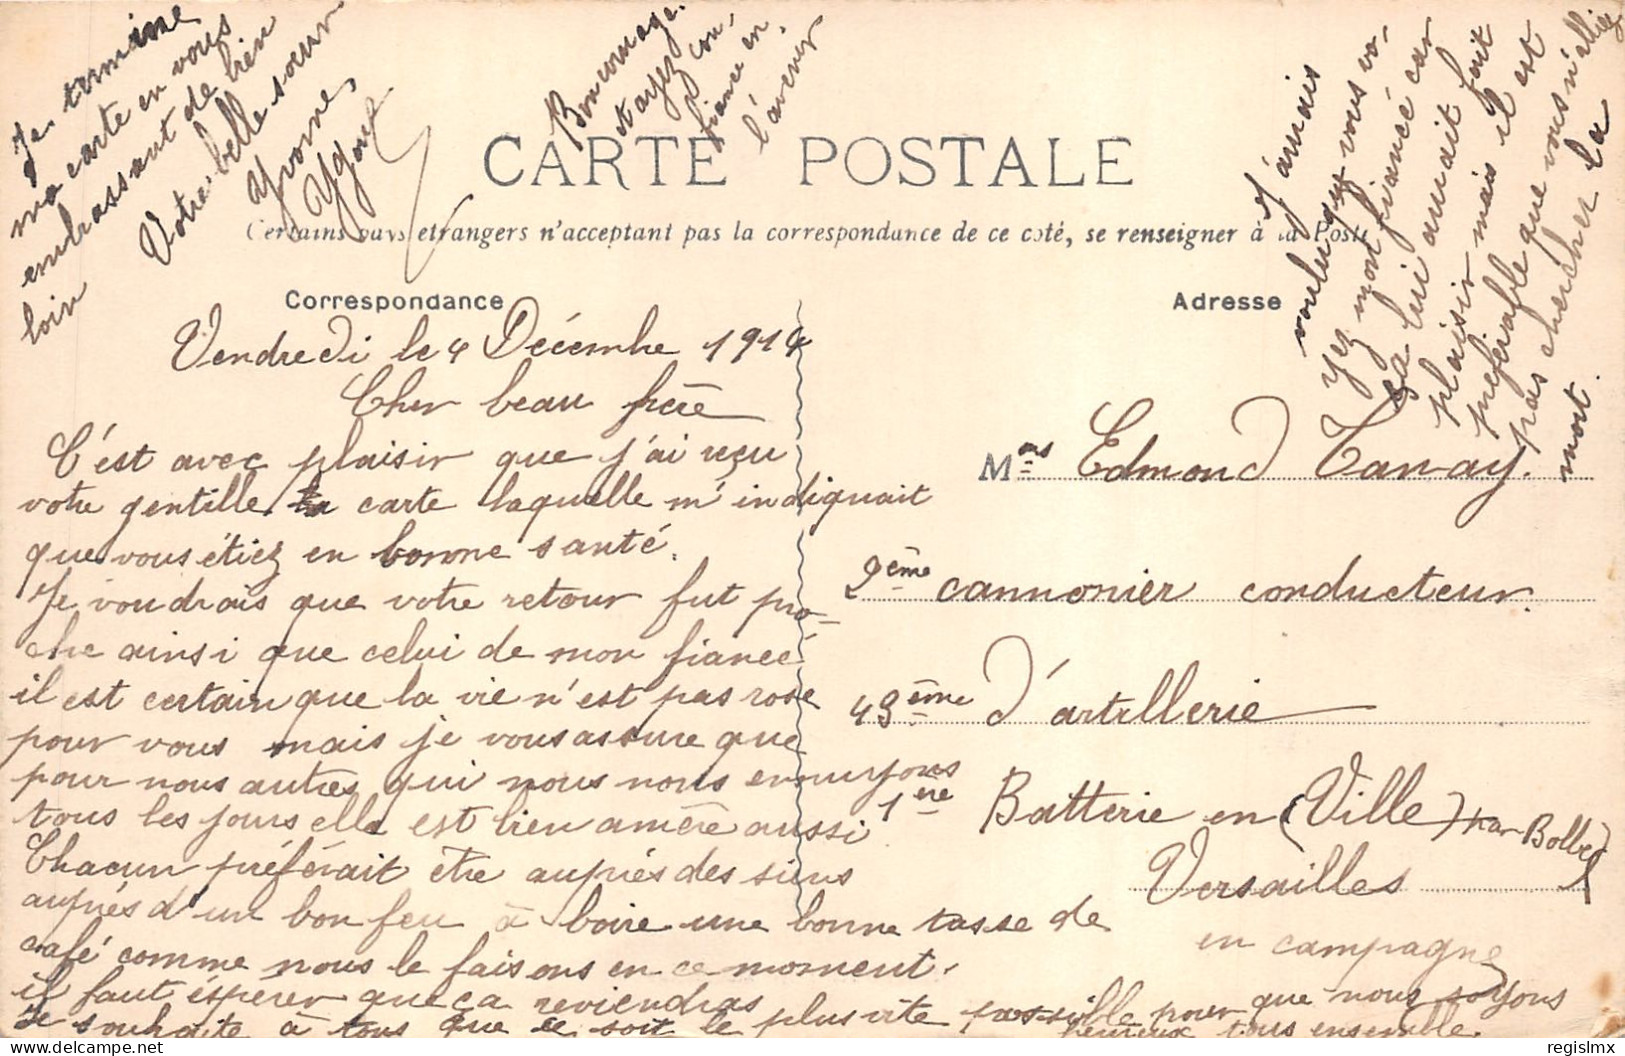 CARTE POSTALE
Certains pays etrangers n'acceptent pas la correspondance de ce coté, se renseigner à la Poste
Correspondance
Vendredi le 4 Décembre 1914
Cher beau frère
C'est avec plaisir que j'ai reçu
votre gentille carte laquelle m'indiquait
que vous étiez en bonne santé.
Je voudrais que votre retour fut pro-
che ainsi que celui de mon fiancé
il est certain que la vie n'est pas rose
pour vous mais je vous assure que
pour nous autres qui nous nous ennuyons
tous les jours elle est bien amère aussi
Chacun préférait être auprès des siens
auprès d'un bon feu à boire une bonne tasse de
café comme nous le faisons en ce moment.
il faut espérer que ça reviendras
je souhaite à tous que ce soit le plus vite possible pour que nous soyons
heureux tous ensemble.
Je termine
ma carte en vous
embrassant de bien
loin
Votre belle sœur
Yvonne
Bon courage.
et ayez con-
fiance en
l'avenir
Adresse
Mons Edmond Tanay.
2ème cannonier conducteur.
43ème d'artillerie
1ère Batterie en (Ville) par Bolbec
Versailles
en campagne
J'aurais
voulu que vous vo-
yez mon fiancé car
ça lui aurait fait
plaisir mais il est
préférable que vous n'alliez
pas chercher la
mort.
regislmx